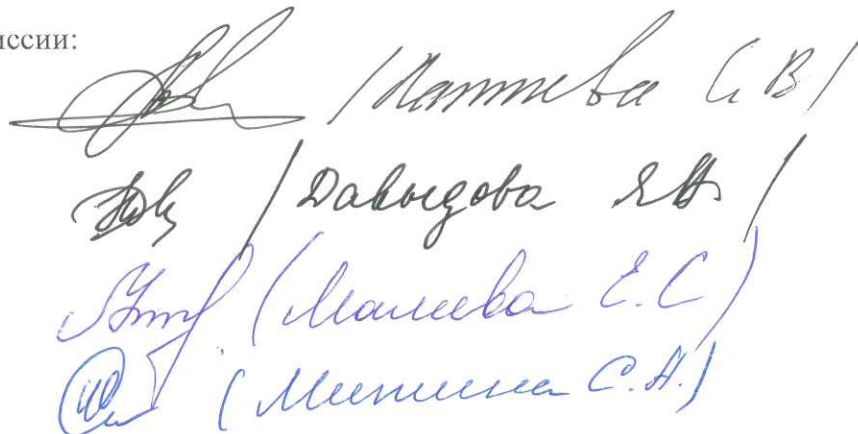 иссии:
/Лаптева С В/
/Давыдова Я.А./
(Малеева Е.С)
(Митина С.А.)